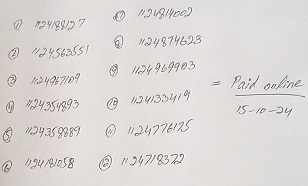 ① 1124188127
② 1124563551
③ 1124967109
④ 1124354893
⑤ 1124359889
⑥ 1124181058
⑦ 1124814002
⑧ 1124874623
⑨ 1124969903
⑩ 1124133419
⑪ 1124776175
⑫ 1124718372
= Paid online
15-10-24